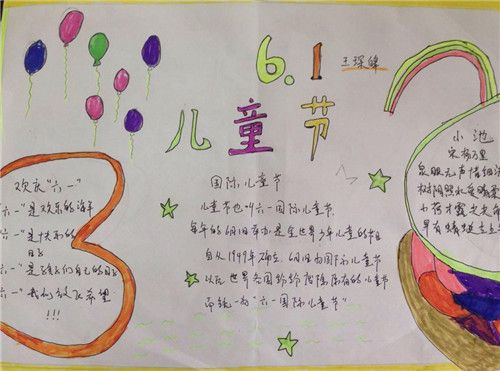 6.1
王琛
儿童节
欢庆"六一"
"六一"是欢乐的海洋
"六一"是快乐的
"六一"是
"六一"我们放飞希望
!!!
国际儿童节
儿童节也叫六一国际儿童节,
每年的6月1日举办是全世界少年儿童的节日
自从1949年确立,6月1日为国际儿童节
以后世界各国纷纷废除原有的儿童节
而统一为"六一国际儿童节"
小池
宋 杨万里
泉眼无声惜细
树阴照水爱晴柔
小荷才露尖尖
早有蜻蜓立